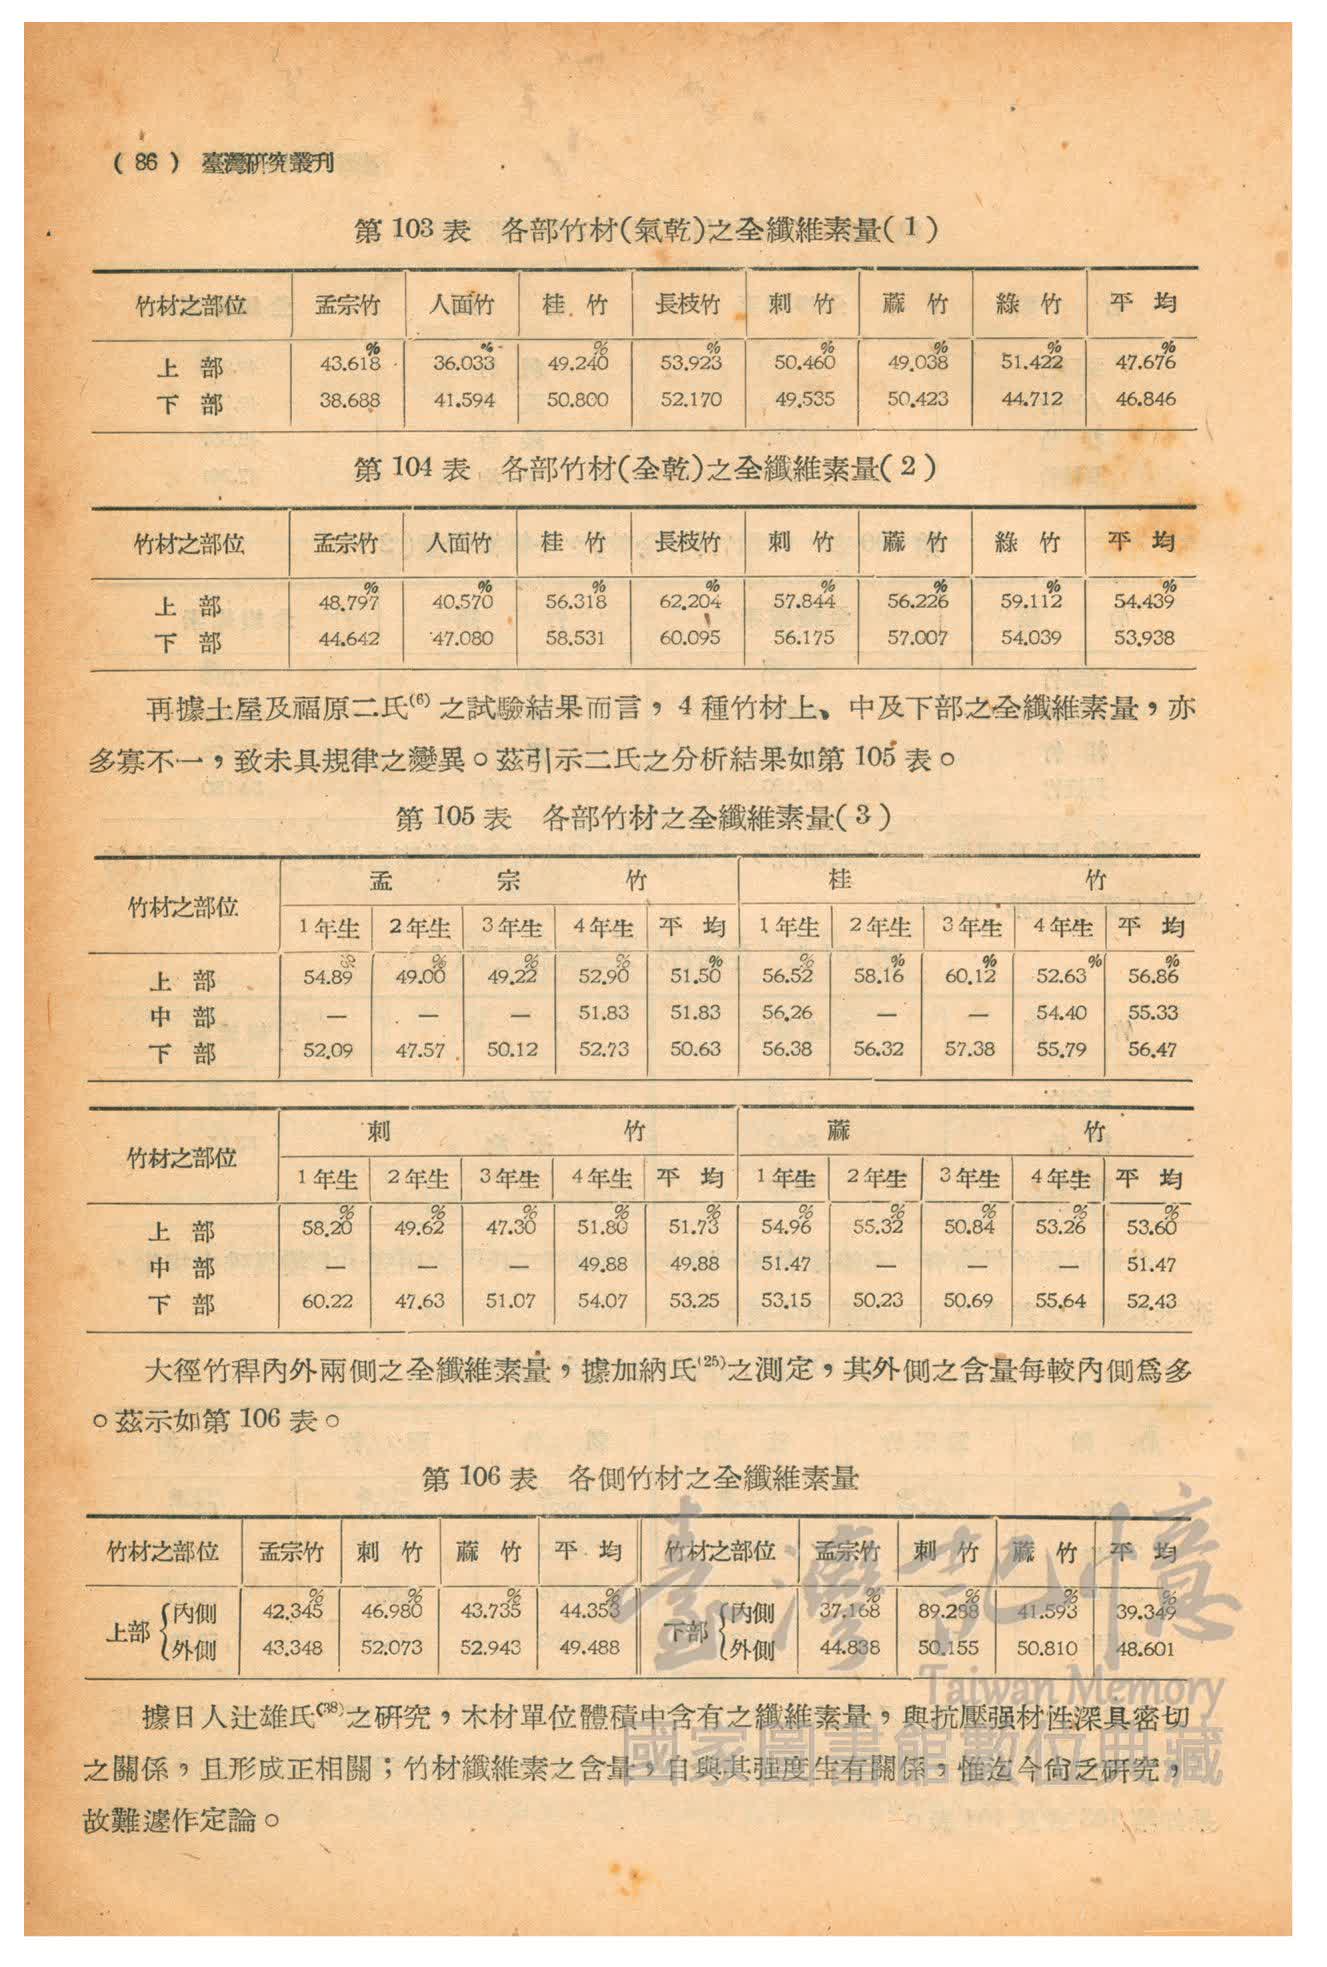 ( 86 ) 臺灣研究叢刊
第 103 表 各部竹材(氣乾)之全纖維素量( 1 )
竹材之部位 孟宗竹 人面竹 桂竹 長枝竹 刺竹 蔴竹 綠竹 平均
% % % % % % % %
上部 43.618 36.033 49.240 53.923 50.460 49.038 51.422 47.676
下部 38.688 41.594 50.800 52.170 49.535 50.423 44.712 46.846
第 104 表 各部竹材(全乾)之全纖維素量( 2 )
竹材之部位 孟宗竹 人面竹 桂竹 長枝竹 刺竹 蔴竹 綠竹 平均
% % % % % % % %
上部 48.797 40.570 56.318 62.204 57.844 56.226 59.112 54.439
下部 44.642 47.080 58.531 60.095 56.175 57.007 54.039 53.938
再據土屋及福原二氏(6)之試驗結果而言，4 種竹材上、中及下部之全纖維素量，亦
多寡不一，致未具規律之變異。茲引示二氏之分析結果如第 105 表。
第 105 表 各部竹材之全纖維素量( 3 )
竹材之部位 孟宗竹 桂竹
1年生 2年生 3年生 4年生 平均 1年生 2年生 3年生 4年生 平均
% % % % % % % % % %
上部 54.89 49.00 49.22 52.90 51.50 56.52 58.16 60.12 52.63 56.86
中部 — — — 51.83 51.83 56.26 — — 54.40 55.33
下部 52.09 47.57 50.12 52.73 50.63 56.38 56.32 57.38 55.79 56.47
竹材之部位 刺竹 蔴竹
1年生 2年生 3年生 4年生 平均 1年生 2年生 3年生 4年生 平均
% % % % % % % % % %
上部 58.20 49.62 47.30 51.80 51.73 54.96 55.32 50.84 53.26 53.60
中部 — — — 49.88 49.88 51.47 — — — 51.47
下部 60.22 47.63 51.07 54.07 53.25 53.15 50.23 50.69 55.64 52.43
大徑竹稈內外兩側之全纖維素量，據加納氏(25)之測定，其外側之含量每較內側爲多
。茲示如第 106 表。
第 106 表 各側竹材之全纖維素量
竹材之部位 孟宗竹 刺竹 蔴竹 平均 竹材之部位 孟宗竹 刺竹 蔴竹 平均
% % % % % % % %
上部 內側 42.345 46.980 43.735 44.353 下部 內側 37.168 89.288 41.593 39.349
外側 43.348 52.073 52.943 49.488 外側 44.838 50.155 50.810 48.601
據日人辻雄氏(38)之研究，木材單位體積中含有之纖維素量，與抗壓强材性深具密切
之關係，且形成正相關；竹材纖維素之含量，自與其强度生有關係，惟迄今尙乏研究，
故難遽作定論。
臺灣記憶
Taiwan Memory
國家圖書館數位典藏